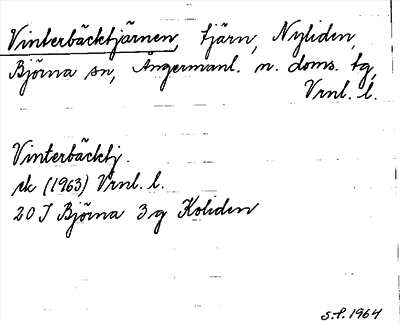 Vinterbäcktjärnen, tjärn, Nyliden,
Björna sn, Ångermanl. n. doms. tg,
Vrnl. l.
Vinterbäcktj.
ek (1963) Vrnl. l.
20 J Björna 3 g Koliden
S.P. 1964